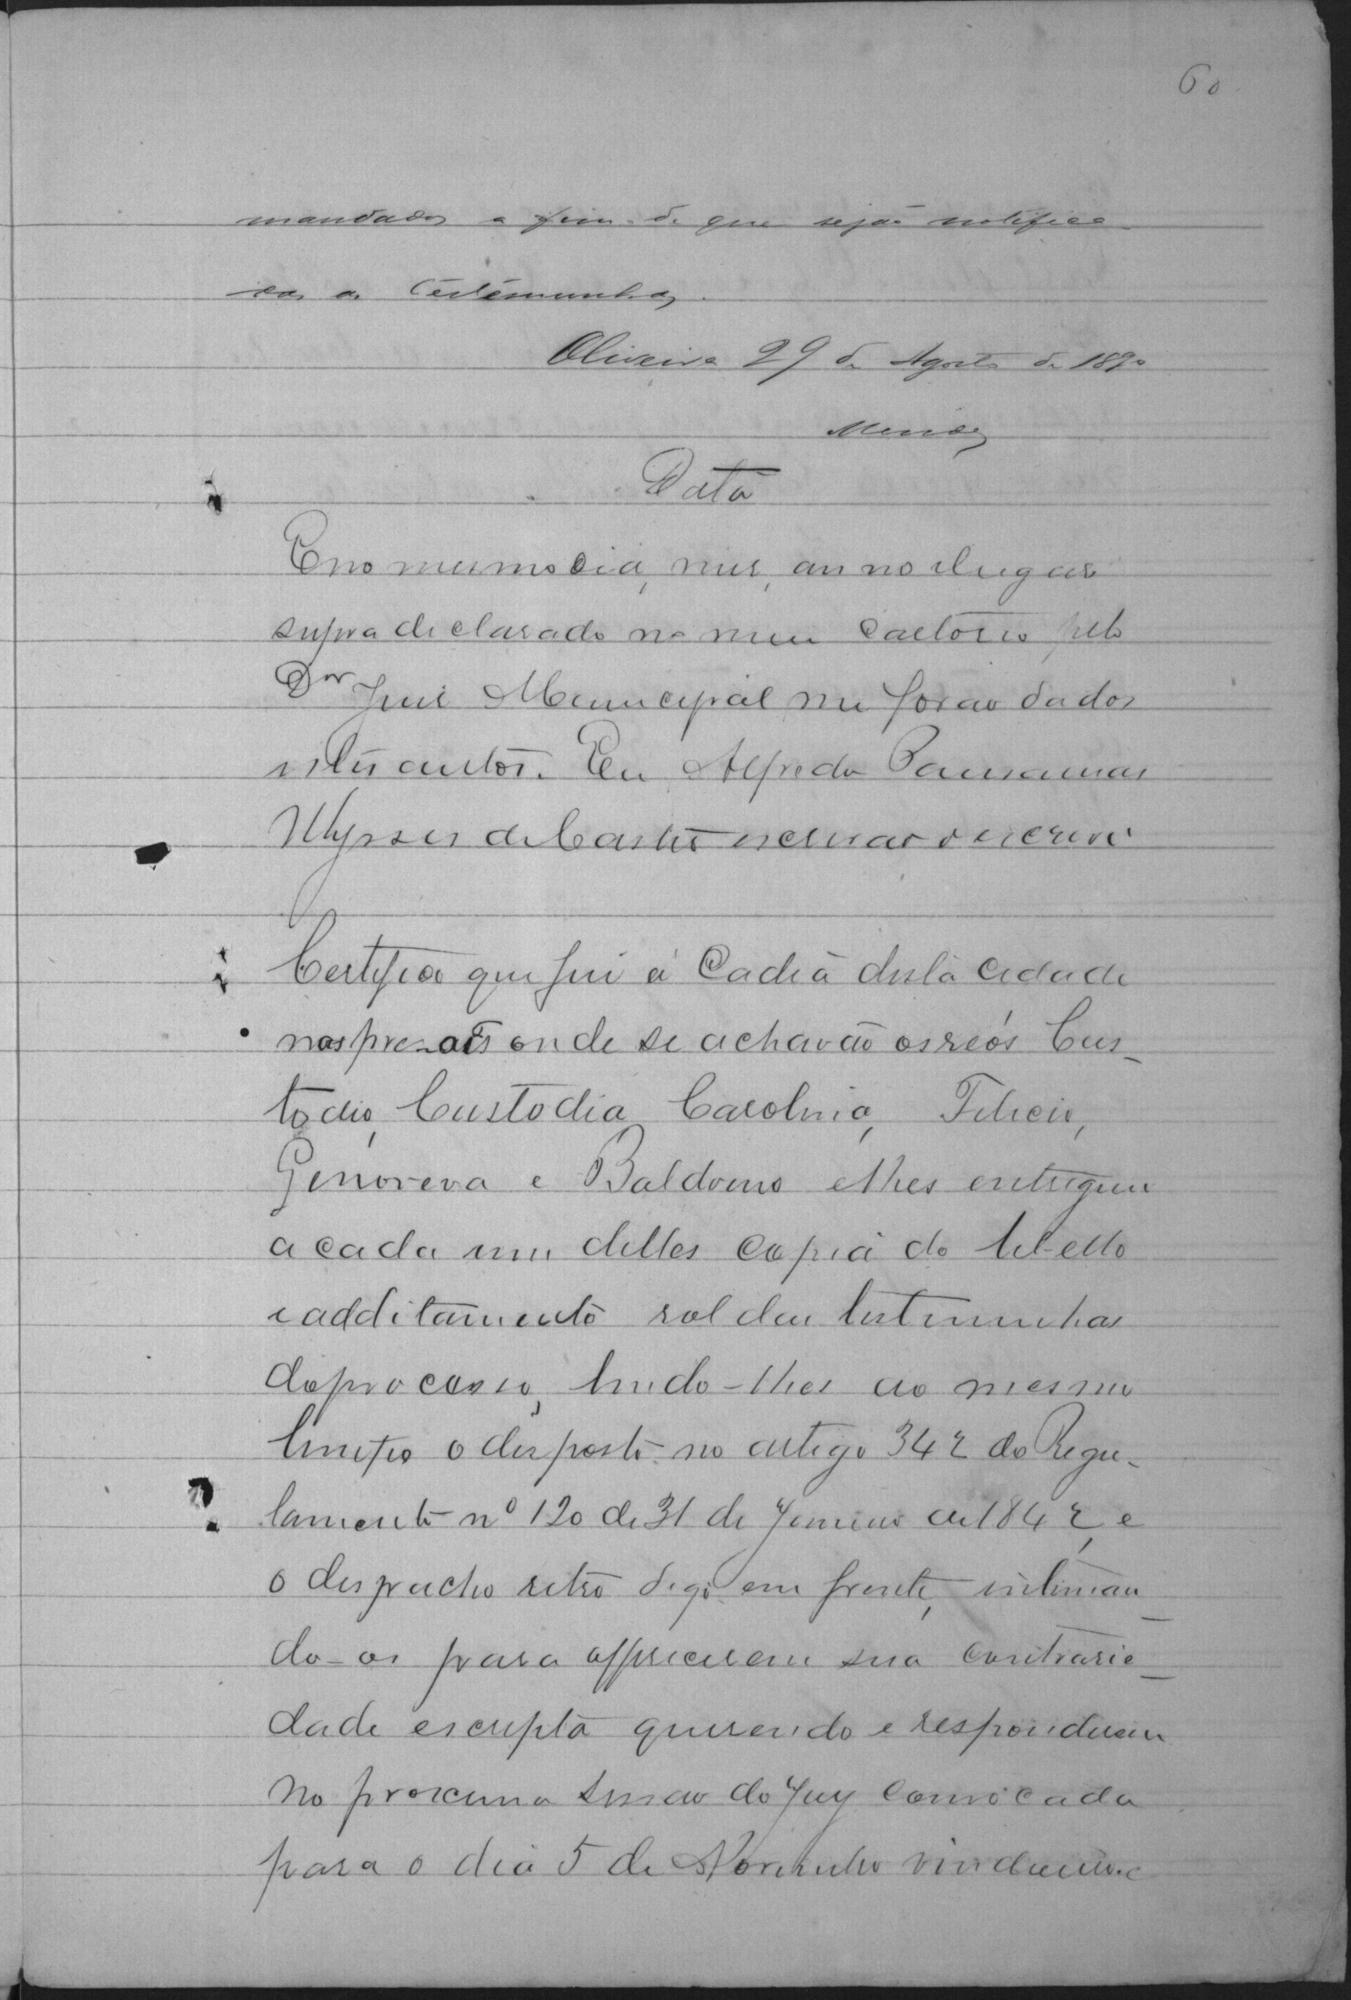 60
mandados a fim de que sejão notifica
das as testemunhas.
Oliveira 29 de Agosto de 1890
Mendes
Data
E no mesmo dia, mes, anno e lugar
supra declarado no meu Cartorio pelo
Dor Juiz Municipal me forão dados
estes autos. Eu Alfredo Pausanias
Ulysses de Castro escrivão o escrevi
Certifico que fui á Cadeia desta cidade
nas prezoes onde se achavão os réos Cus-
todio, Custodia, Carolina, Felicio,
Genoveva e Baldoino e lhes entreguei
a cada um delles copia do libello
e additamento rol das testemunhas
do processo, lendo-lhes ao mesmo
tempo o disposto no artigo 342 do Regu-
lamento nº 120 de 31 de Janeiro de 1842, e
o despacho retro digo em frente, intiman-
do-os para offerecerem sua contrarie-
dade escripta querendo e responderem
na proxima sessão do Jury convocada
para o dia 5 de Novembro vindouro e